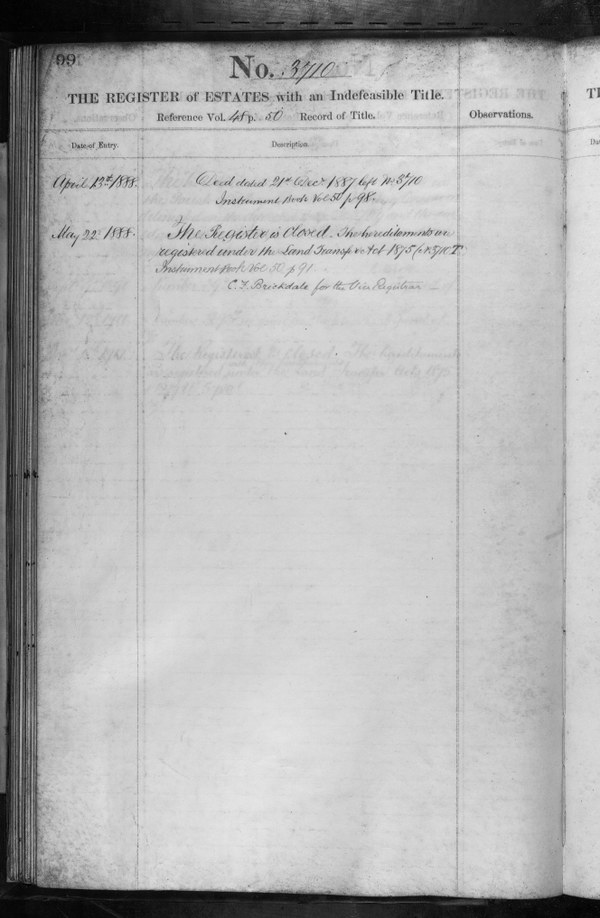 99
No. 3710
THE REGISTER of ESTATES with an Indefeasible Title.
Reference Vol. 48 p. 50 Record of Title.
Observations.
Date of Entry.
Description.
April 13th 1888.
Deed dated 21st Decr 1887 No 3710
Instrument Book Vol 50 p 98.
May 22 1888.
The Register is Closed. The hereditaments are
registered under the Land Transfer Act 1875
Instrument Book Vol 50 p 91
C. F. Brickdale for the Vice Registrar